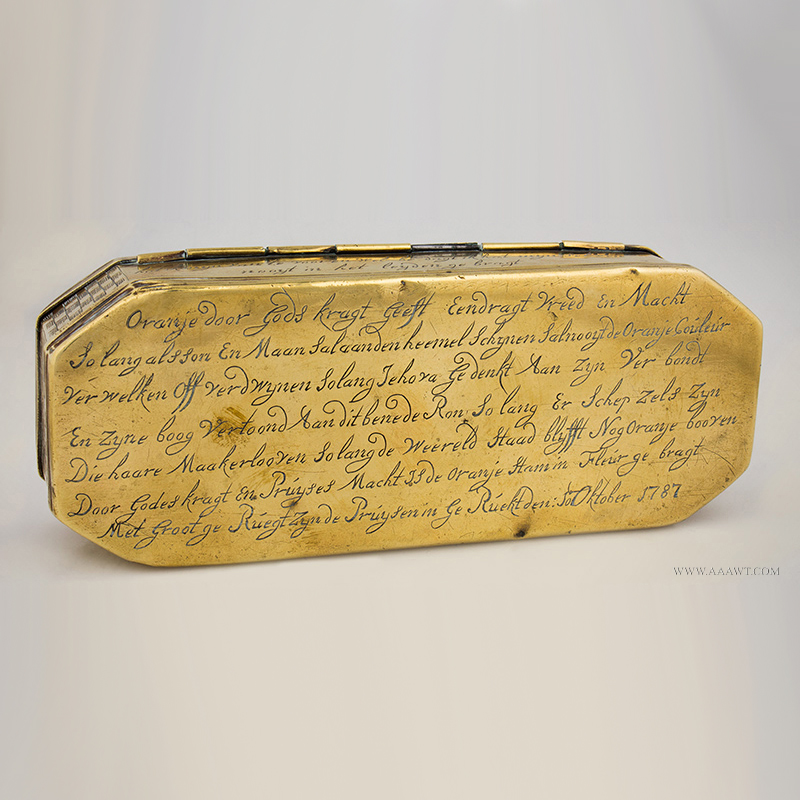 nooyt in het leyden ge bragt
Oranje door Gods kragt Geeft Eendragt Vreed En Macht
So lang als son En Maan Sal aanden heemel Schynen Sal nooyt de Oranje Couleur
Ver welken Off verdwynen So lang Jehova Gedenkt Aan Zyn Ver bondt
En Zyne boog Vertoond Aan dit benede Ron, So lang Er Schep Zels Zyn
Die haare Maaker looven So lang de Weereld Staad blyfft Nog Oranje booven
Door Godes kragt En Pruyses Macht IS de Oranje Stam in Fleur ge bragt
Met Groot ge Ruegt Zyn de Pruysen in Ge Ruekt den: Oktober 1787
WWW.AAAWT.COM